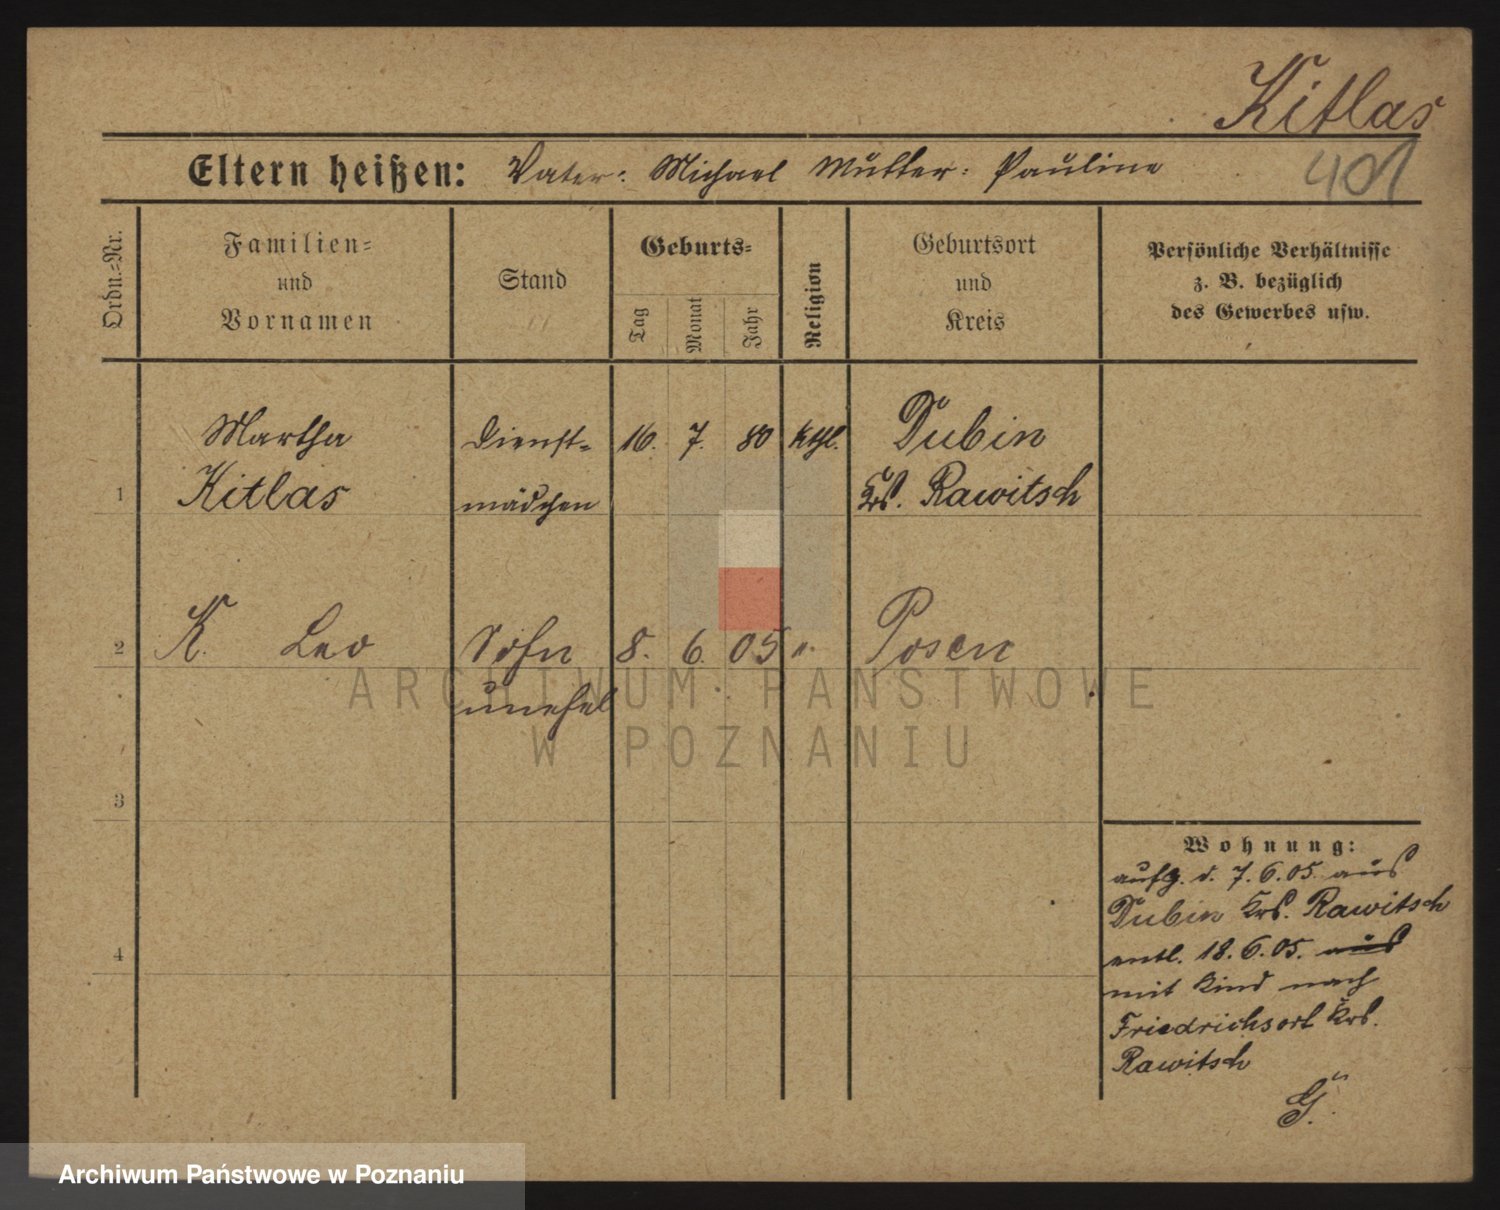 Kitlas
401
Eltern heißen: Vater: Michael Mutter: Pauline
Ordn.=Nr.
Familien=
und
Vornamen
Stand
Geburts=
Tag
Monat
Jahr
Religion
Geburtsort
und
Kreis
Persönliche Verhältnisse
z. B. bezüglich
des Gewerbes usw.
1
Martha
Kitlas
Dienst=
mädchen
16. 7. 80
kthl.
Dubin
Krs. Rawitsch
2
K. Leo
Sohn
unehel
8. 6. 05
".
Posen
3
4
Wohnung:
aufg. d. 7. 6. 05. aus
Dubin Krs. Rawitsch
entl. 18. 6. 05. aus
mit Kind nach
Friedrichsort Krs.
Rawitsch
G.
ARCHIWUM PAŃSTWOWE
W POZNANIU
Archiwum Państwowe w Poznaniu